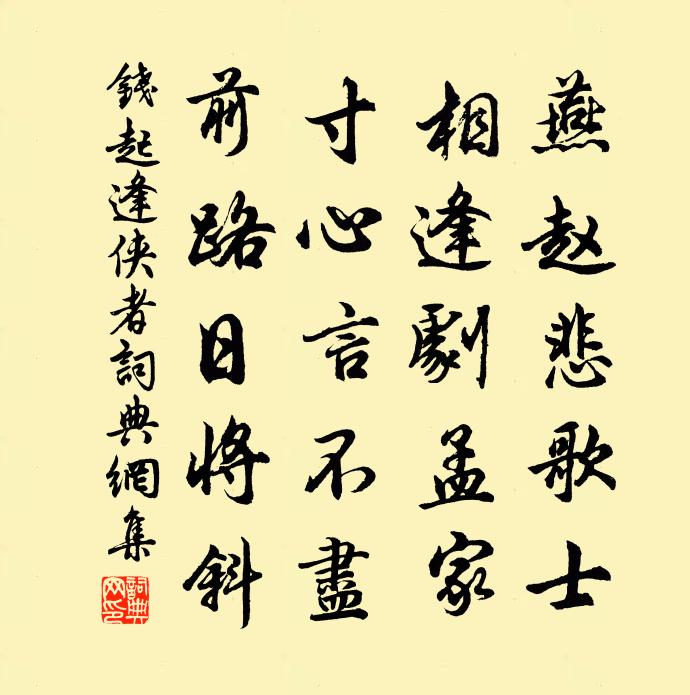 燕赵悲歌士
相逢劇孟家
寸心言不盡
前路日將斜
錢起逢俠者詞典網集
詞典网印